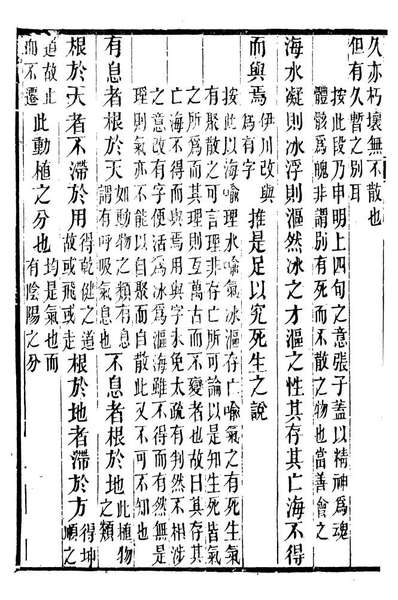 久亦朽壞無不散也
但有久暫之別耳
按此段乃申明上四句之意張子蓋以精神爲魂
體骸爲魄非謂別有死而不散之物也當善會之
海水凝則冰浮則漚然冰之才漚之性其存其亡海不得
而與焉 伊川改與 爲有字 推是足以究死生之說
按此以海喻理水喻氣冰漚存亡喻氣之有死生氣
有聚散之可言理非存亡所可論以是知生死皆氣
之所爲而其理則亙萬古而不變者也故曰其存其
亡海不得而與焉用與字未免太疏有判然不相涉
之意改有字便活爲冰爲漚海雖不得而有然無是
理則氣亦不能以自聚而自散此又不可不知也
有息者根於天 如動物之類有息 謂有呼吸氣息也 不息者根於地 此植物 之類
根於天者不滯於用 得乾健之道 故或飛或走 根於地者滯於方 得坤 順之
道故止 而不遷 此動植之分也 均是氣也而 有陰陽之分